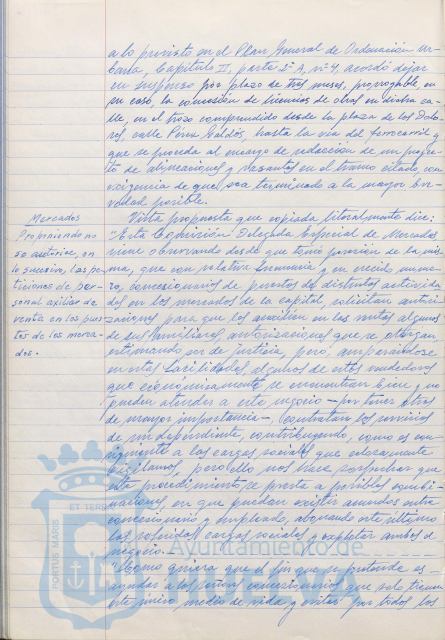 a lo previsto en el Plan General de Ordenación ur-
bana, Capítulo II, parte 2ª A, nº 4, acordó dejar
en suspenso por plazo de tres meses, prorrogable en
su caso, la concesión de licencias de obras en dicha ca-
lle, en el trozo comprendido desde la plaza de los Dolo-
res, calle Pérez Galdós, hasta la vía del ferrocarril y
que se proceda al encargo de redacción de un proyec-
to de alineaciones y rasantes en el tramo citado, con
exigencia de que sea terminado a la mayor bre-
vedad posible.
Mercados
Proponiendo no
se autorice, en
lo sucesivo, las pe-
ticiones de per-
sonal auxiliar de
venta en los pues-
tos de los merca-
dos.
Vista propuesta que copiada literalmente dice:
"Esta Comisión Delegada Especial de Mercados
viene observando desde que tomó posesión de la mis-
ma, que con relativa frecuencia y en crecido núme-
ro, concesionarios de puestos de distintas activida-
des en los mercados de la capital solicitan autori-
zaciones para que los auxilien en las ventas algunos
de sus familiares, autorizaciones que se otorgan
estimando ser de justicia, pero, amparándose
en estas facilidades, algunos de estos vendedores
que económicamente se encuentran bien y no
pueden atender a este negocio - por tener otros
de mayor importancia -, contratan los servicios
de un dependiente, contribuyendo, como es con-
siguiente a las cargas sociales que
vigilamos, pero ello nos hace sospechar que
este procedimiento se presta a posibles combi-
naciones, en que puedan existir acuerdos entre
concesionario y empleado, abonando este último
las referidas cargas sociales y explotar ambos el
negocio.
"Como quiera que el fin que se pretende es
ayudar a los señores concesionarios que solo tienen
este único medio de vida y evitar por todos los
PORTUS MARIS
ET TERRAE
Ayuntamiento de
HUELVA